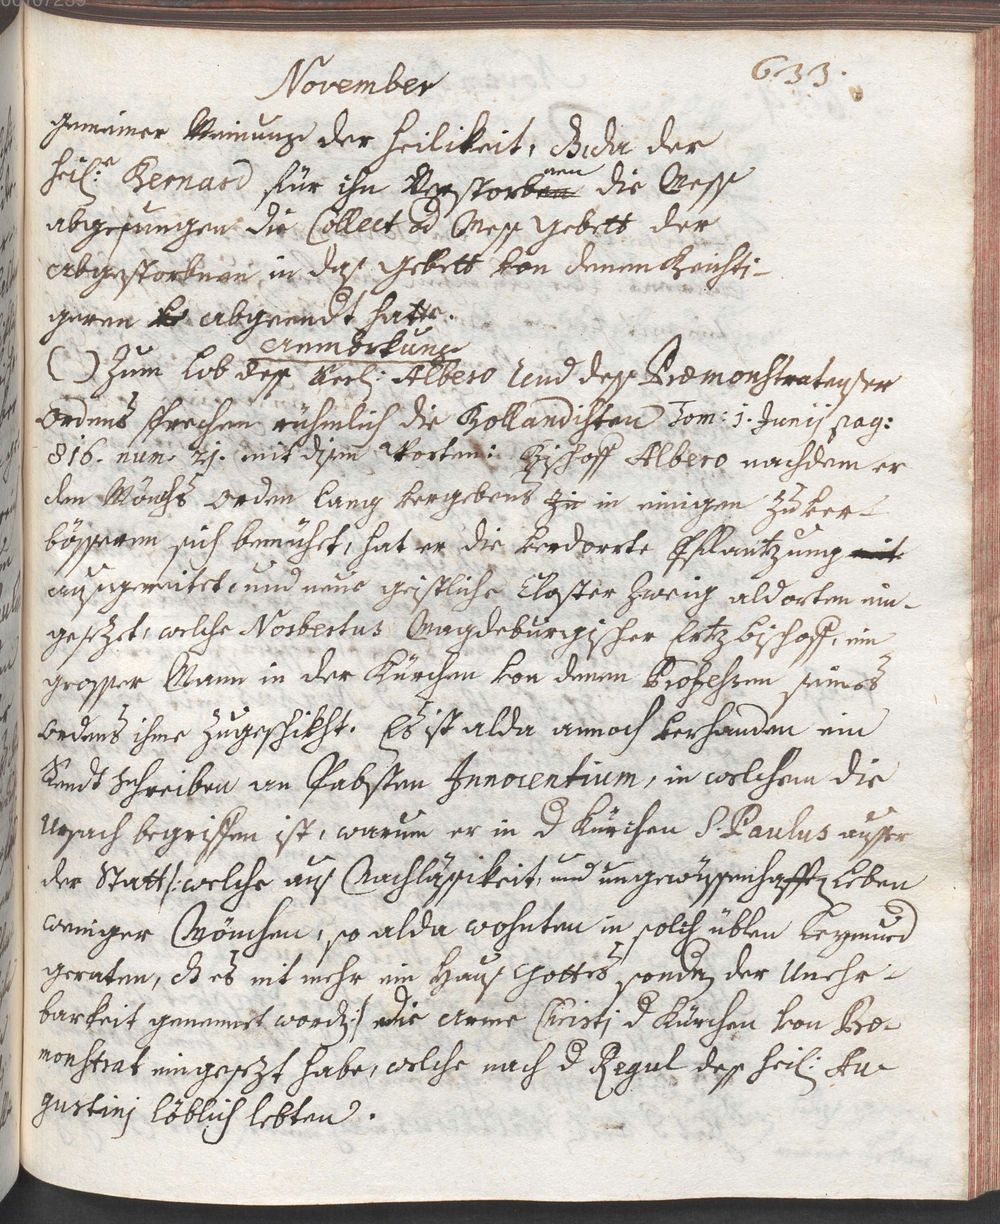 November 633.
gemainer Meinung der heilikeit, dieda der
heil: Bernard für ihn Verstorbnen die Mess
abgesungen die Collect od Mess gebett der
abgestorbnen in das gebett von denen Beichti-
geren abgeendt hatte.
Anmörkung
( ) Zum lob dess Seel: Albero und dess Præmonstratenser
ordens sprechen rühmlich die Bollandisten Tom: 1. Junij pag:
816. num. 21. mit disen Worten: Bischoff Albero nachdem er
den Mönchs orden lang vergebens in einigen zu ver-
bösseren sich bemühet, hat er die verdorrte Pflantzung
ausgereitet und neue geistliche Closter zweig aldorten ein-
gesezet, welche Norbertus Magdeburgischer Ertzbischoff, ein
grosser Mann in der Kürchen von denen Professen seines
ordens ihme zugeschikht. Es ist alda annoch verhanden ein
Sendtschreiben an Pabsten Innocentium, in welchem die
Ursach begriffen ist, warum er in d Kürchen S. Paulus ausser
der Statt /: welche aus Nachlässikeit, und ungewüssenhafftn leben
weniger Mönchen, so alda wohnten in solch üblen Leymued
geraten, d es nit mehr ein Haus Gottes sondn der Unehr-
barkeit genennet wordn :/ die arme Christi d Kürchen von Præ-
monstrat eingesezt habe, welche nach d Regul dess heil: Au-
gustini löblich lebten.